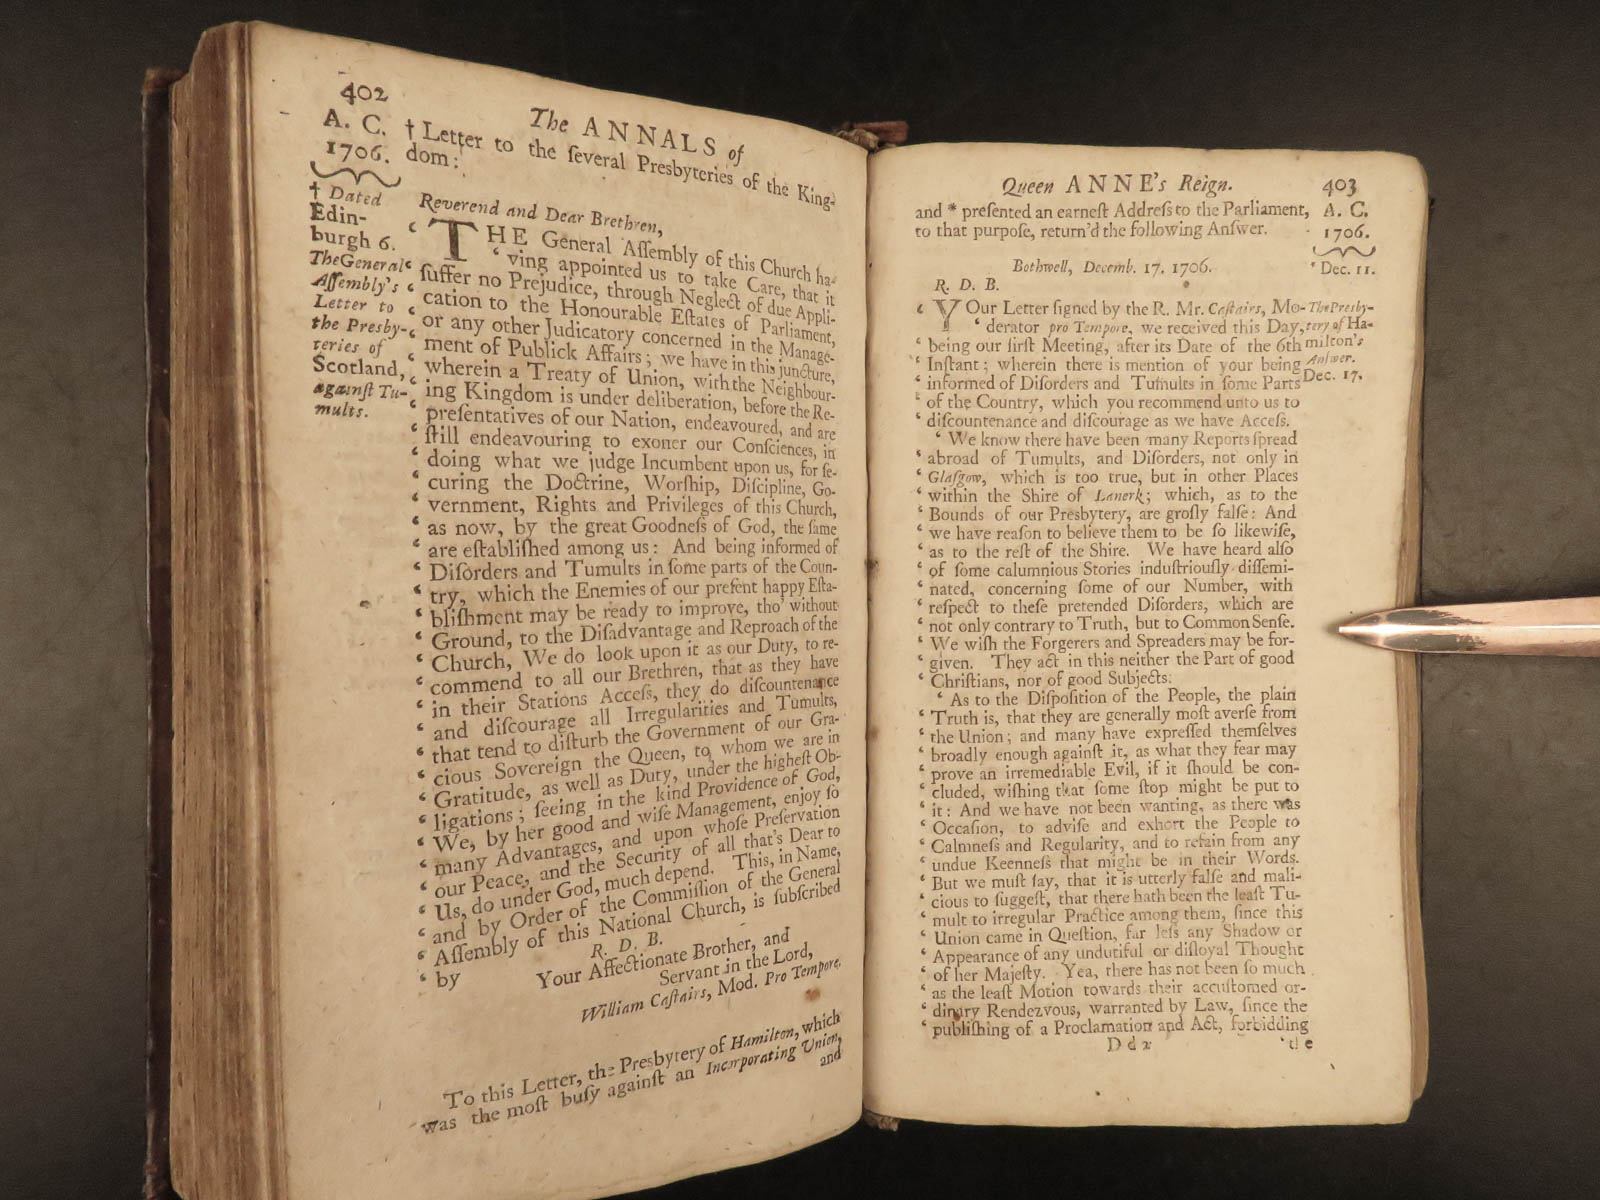 402
The ANNALS of
A. C.
1706.
† Letter to the ſeveral Preſbyteries of the King-
dom:
† Dated
Edin-
burgh 6.
The General
Aſſembly's
Letter to
the Preſby-
teries of
Scotland,
againſt Tu-
mults.
Reverend and Dear Brethren,
‘ THE General Aſſembly of this Church ha-
‘ ving appointed us to take Care, that it
‘ ſuffer no Prejudice, through Neglect of due Appli-
‘ cation to the Honourable Eſtates of Parliament,
‘ or any other Judicatory concerned in the Manage-
‘ ment of Publick Affairs; we have in this juncture,
‘ wherein a Treaty of Union, with the Neighbour-
‘ ing Kingdom is under deliberation, before the Re-
‘ preſentatives of our Nation, endeavoured, and are
‘ ſtill endeavouring to exoner our Conſciences, in
‘ doing what we judge Incumbent upon us, for ſe-
‘ curing the Doctrine, Worſhip, Diſcipline, Go-
‘ vernment, Rights and Privileges of this Church,
‘ as now, by the great Goodneſs of God, the ſame
‘ are eſtabliſhed among us: And being informed of
‘ Diſorders and Tumults in ſome parts of the Coun-
‘ try, which the Enemies of our preſent happy Eſta-
‘ bliſhment may be ready to improve, tho' without
‘ Ground, to the Diſadvantage and Reproach of the
‘ Church, We do look upon it as our Duty, to re-
‘ commend to all our Brethren, that as they have
‘ in their Stations Acceſs, they do diſcountenance
‘ and diſcourage all Irregularities and Tumults,
‘ that tend to diſturb the Government of our Gra-
‘ cious Sovereign the Queen, to whom we are in
‘ Gratitude, as well as Duty, under the higheſt Ob-
‘ ligations; ſeeing in the kind Providence of God,
‘ We, by her good and wiſe Management, enjoy ſo
‘ many Advantages, and upon whoſe Preſervation
‘ our Peace, and the Security of all that's Dear to
‘ Us, do under God, much depend. This, in Name,
‘ and by Order of the Commiſſion of the General
‘ Aſſembly of this National Church, is ſubſcribed
‘ by
R. D. B.
Your Affectionate Brother, and
Servant in the Lord,
William Caſtairs, Mod. Pro Tempore.
To this Letter, the Presbytery of Hamilton, which
was the moſt buſy againſt an Incorporating Union,
and
Queen ANNE's Reign.
403
and * preſented an earneſt Addreſs to the Parliament,
to that purpoſe, return'd the following Anſwer.
A. C.
1706.
* Dec. 11.
Bothwell, Decemb. 17. 1706.
R. D. B.
‘ YOur Letter ſigned by the R. Mr. Caſtairs, Mo-
‘ derator pro Tempore, we received this Day,
‘ being our firſt Meeting, after its Date of the 6th
‘ Inſtant; wherein there is mention of your being
‘ informed of Diſorders and Tumults in ſome Parts
‘ of the Country, which you recommend unto us to
‘ diſcountenance and diſcourage as we have Acceſs.
The Presby-
tery of Ha-
milton's
Anſwer.
Dec. 17.
‘ We know there have been many Reports ſpread
‘ abroad of Tumults, and Diſorders, not only in
‘ Glaſgow, which is too true, but in other Places
‘ within the Shire of Lanerk; which, as to the
‘ Bounds of our Presbytery, are groſly falſe: And
‘ we have reaſon to believe them to be ſo likewiſe,
‘ as to the reſt of the Shire. We have heard alſo
‘ of ſome calumnious Stories induſtriouſly diſſemi-
‘ nated, concerning ſome of our Number, with
‘ reſpect to theſe pretended Diſorders, which are
‘ not only contrary to Truth, but to Common Senſe.
‘ We wiſh the Forgerers and Spreaders may be for-
‘ given. They act in this neither the Part of good
‘ Chriſtians, nor of good Subjects.
‘ As to the Diſpoſition of the People, the plain
‘ Truth is, that they are generally moſt averſe from
‘ the Union; and many have expreſſed themſelves
‘ broadly enough againſt it, as what they fear may
‘ prove an irremediable Evil, if it ſhould be con-
‘ cluded, wiſhing that ſome ſtop might be put to
‘ it: And we have not been wanting, as there was
‘ Occaſion, to adviſe and exhort the People to
‘ Calmneſs and Regularity, and to refain from any
‘ undue Keenneſs that might be in their Words.
‘ But we muſt ſay, that it is utterly falſe and mali-
‘ cious to ſuggeſt, that there hath been the leaſt Tu-
‘ mult to irregular Practice among them, ſince this
‘ Union came in Queſtion, far leſs any Shadow or
‘ Appearance of any undutiful or diſloyal Thought
‘ of her Majeſty. Yea, there has not been ſo much
‘ as the leaſt Motion towards their accuſtomed or-
‘ dinary Rendezvous, warranted by Law, ſince the
‘ publiſhing of a Proclamation and Act, forbidding
D d 2
‘ the